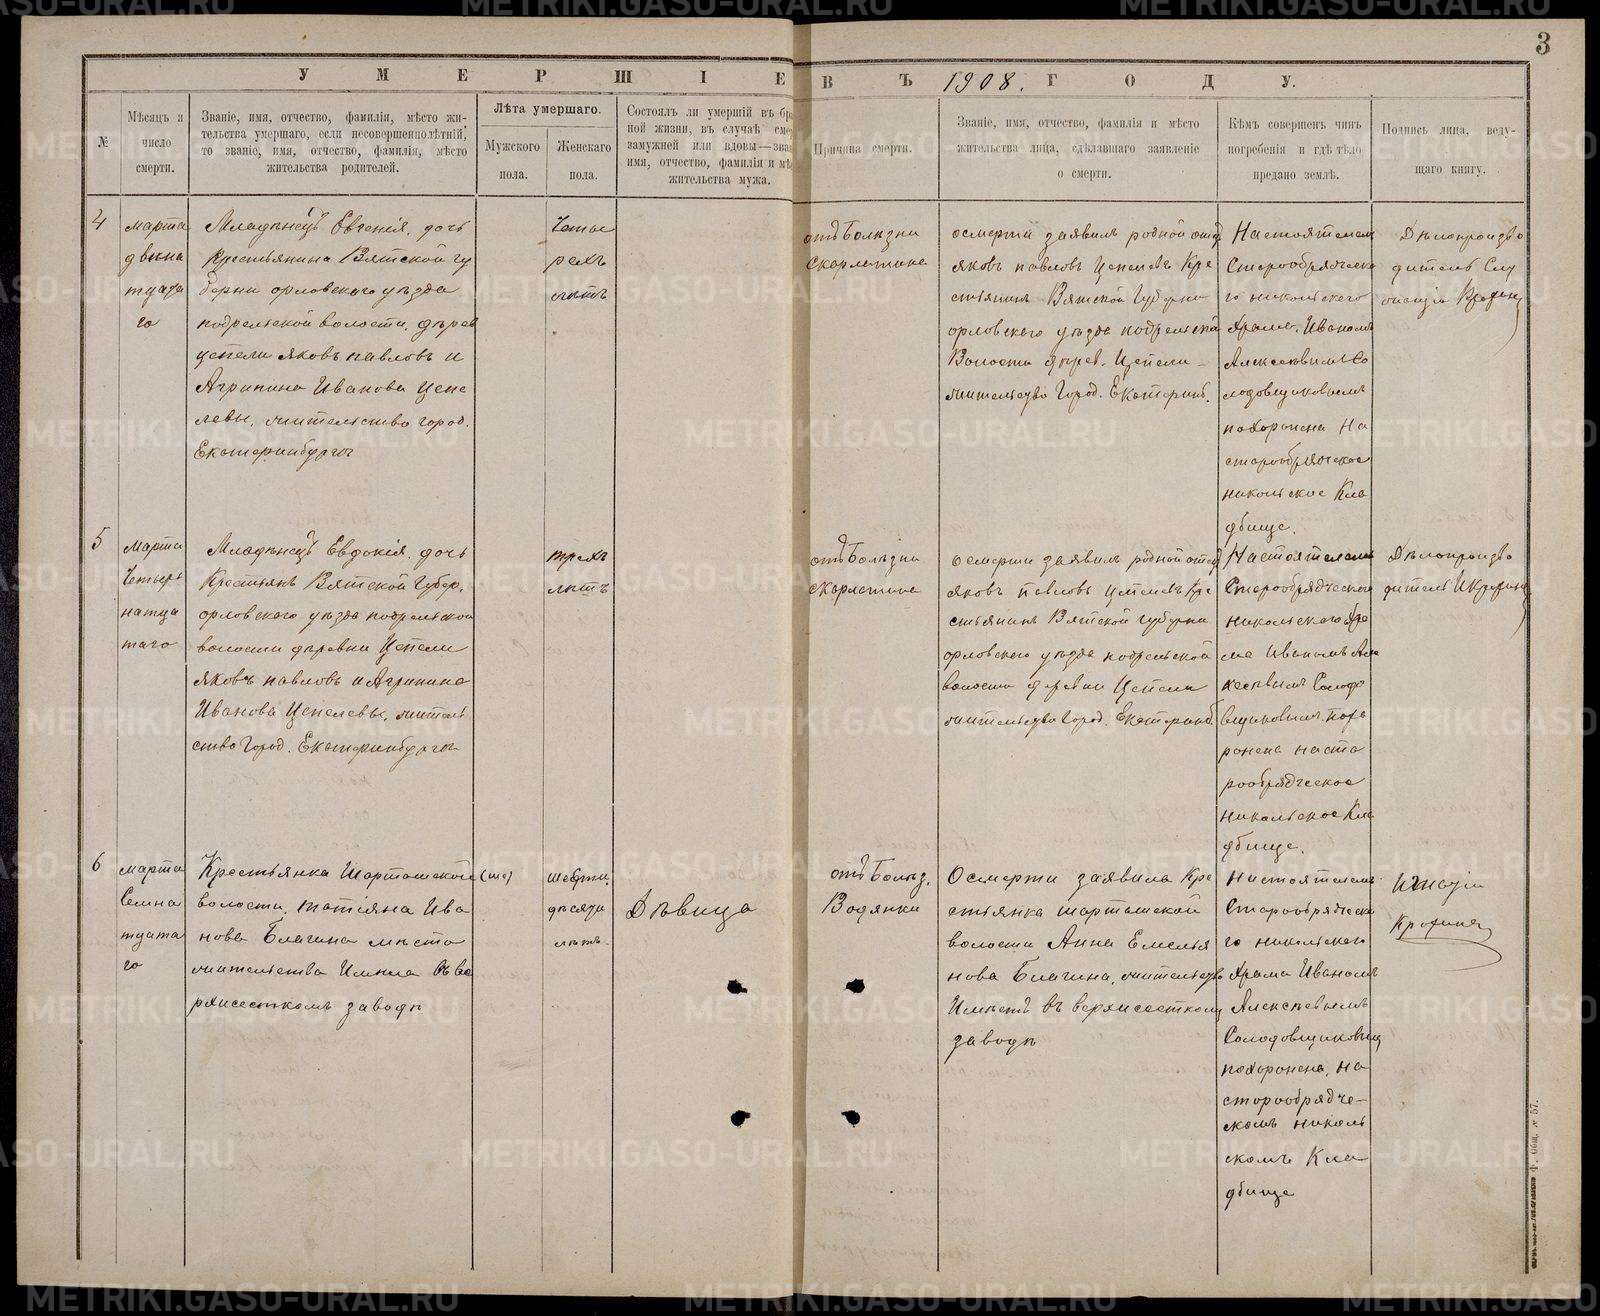 3
УМЕРШІЕ ВЪ 1908. ГОДУ.
№
Мѣсяцъ и
число
смерти.
Званіе, имя, отчество, фамилія, мѣсто жи-
тельства умершаго, если несовершеннолѣтній,
то званіе, имя, отчество, фамилія, мѣсто
жительства родителей.
Лѣта умершаго.
Мужского
пола.
Женскаго
пола.
Состоялъ ли умершій въ бра
ной жизни, въ случаѣ сме
замужней или вдовы—зва
имя, отчество, фамилія и мѣ
жительства мужа.
Причина смерти.
Званіе, имя, отчество, фамилія и мѣсто
жительства лица, сдѣлавшаго заявленіе
о смерти.
Кѣмъ совершенъ чинъ
погребенія и гдѣ тѣло
предано землѣ.
Подпись лица, веду-
щаго книгу.
4
марта
двѣна
тцата
го
Младѣнецъ Евгенія, дочь
Крестьянина Вятской гу
берни орловского уѣзда
подрельской волости, дѣрев
цепели яковъ павловъ и
Агрипина Иванова Цепе
левы, жительство город.
Екатеринбурга
Четы
рехъ
лѣтъ
отъ Болѣзни
скарлатине
осмерти заявилъ родной отец
яковъ павловъ Цепелевъ Кре
стьянинъ Вятской Губерни
орловского уѣзда подрельской
Волости дѣрев. Цепели
жительство Город. Екатеринб.
Настоятелем
Старообрядческо
го никольского
Храма. Иваномъ
Алексеевымъ Со
лодовщиковымъ
похоронена На
старообрядческое
никольское Кла
дбище.
Дѣлопроизво
дитель
5
марта
Четыр
натца
таго
Младѣнецъ Евдокія, дочь
Крестьянъ Вятской Губер.
орловского уѣзда подрельской
волости дѣревни Цепели
яковъ павловъ и Агрипина
Иванова Цепелевы, житель
ство Город. Екатеринбурга
трехъ
лѣтъ
отъ Болѣзни
скарлатине
осмерти заявилъ родной отец
яковъ павловъ Цепелевъ Кре
стьянинъ Вятской губерни
орловского уѣзда подрельской
волости деревни Цепели
жительство Город. Екатеринб
Настоятелемъ
Старообрядческого
никольского хра
ма Иваномъ Але
ксеевымъ Солодо
вщиковымъ похо
ронена наста
рообрядческое
никольское Кла
дбище.
Дѣлопроизво
дитель И Крохин
6
марта
Семна
тцата
го
Крестьянка Шарташской
волости, татіяна Ива
нова Благина мѣсто
жительства Имѣла въ ве
рхисесткомъ заводѣ
(ше)
шесть
десять
лѣтъ
Дѣвица
отъ Болѣз.
Водянки
Осмерти заявила Кре
стьянка шарташской
волости Анна Емелья
нова Благина, жительство
Имѣетъ въ верхисестком
заводѣ
Настоятелемъ
Старообрядческо
го никольского
Храма Иваномъ
Алексѣевымъ
Солодовщиковым
похоронена, на
старообрядче-
скомъ николь
скомъ Кла
дбище
Игнатій
Крохин
METRIKI.GASO-URAL.RU